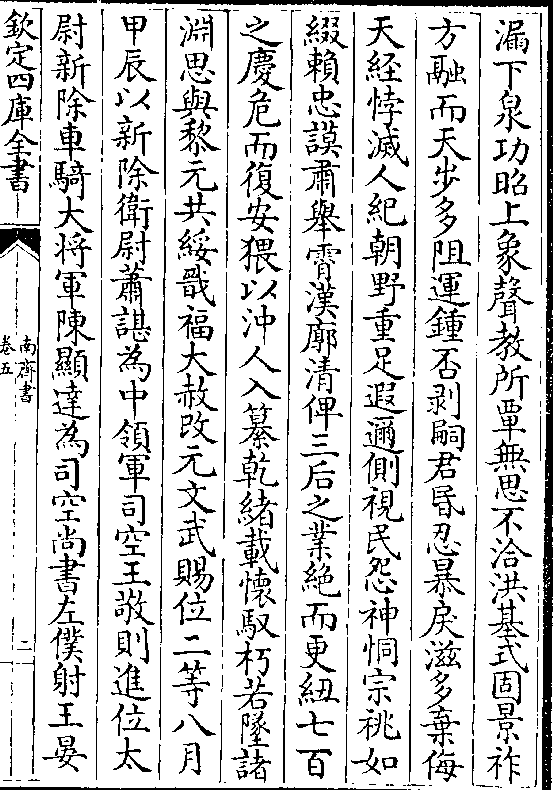 漏下泉功昭上象聲教所覃無思不洽洪基式固景祚
方融而天步多阻運鍾否剥嗣君昏忍暴戾滋多棄侮
天經悖滅人紀朝野重足遐邇側視民怨神恫宗祧如
綴賴忠謨肅舉霄漢廓清俾三后之業絶而更紐七百
之慶危而復安猥以沖人入纂乾緒載懷馭朽若墜諸
淵思與黎元共綏戩福大赦改元文武賜位二等八月
甲辰以新除衛尉蕭諶為中領軍司空王敬則進位太
尉新除車騎大將軍陳顯達為司空尚書左僕射王晏
欽定四庫全書
南齊書
卷五
二